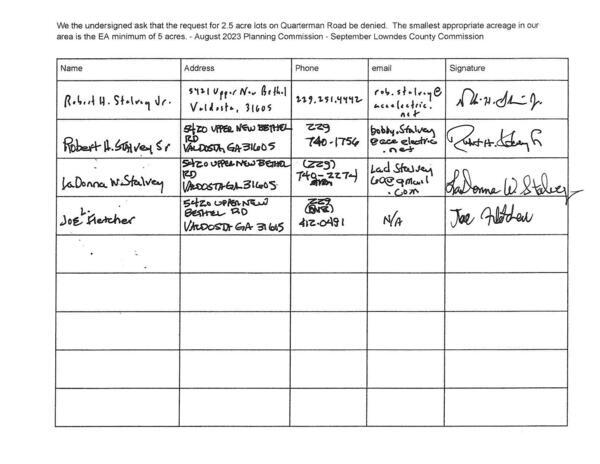 We the undersigned ask that the request for 2.5 acre lots on Quarterman Road be denied. The smallest appropriate acreage in our
area is the EA minimum of 5 acres. - August 2023 Planning Commission - September Lowndes County Commission
Name Address Phone email Signature
Robert H. Stalvey Jr.
5421 Upper New Bethel
Valdosta, 31605
229.251.4442
rob.stalvey@
aceelectric.
net
Robert H. Stalvey Sr
5420 UPPER NEW BETHEL
RD
VALDOSTA GA 31605
229
740-1756
bobby.stalvey
@ace electric
.net
LaDonna W. Stalvey
5420 UPPER NEW BETHEL
RD
VALDOSTA GA 31605
(229)
740-2274
Lad Stalvey
@gmail
.com
LaDonna W Stalvey
Joe L. Fletcher
5420 UPPER NEW
BETHEL RD
VALDOSTA GA 31605
229
412-0491
N/A
Joe Fletcher